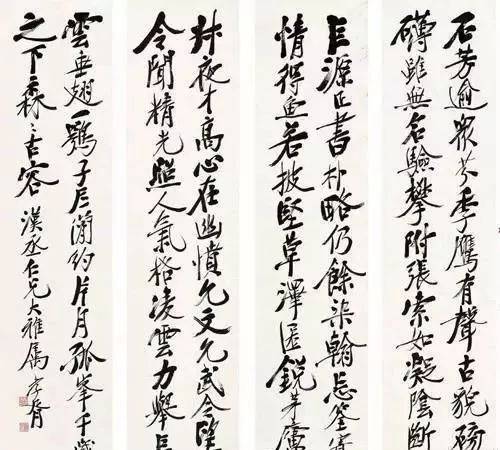 石芳逾眾芬季鷹有聲古貌磅
礴雖無名驗攀附張索如凝陰斷
長源正書朴略仍餘染翰忘筌寄
情得魚若披堅草澤匿銳茅廬
叔夜才高心在幽憤允文允武令望
令聞精光照人氣格凌雲力舉巨
雲垂翅一鶚子尼蘭約片月孤峯千歲
之下森〻古容 漢丞仁兄大雅屬 孝胥